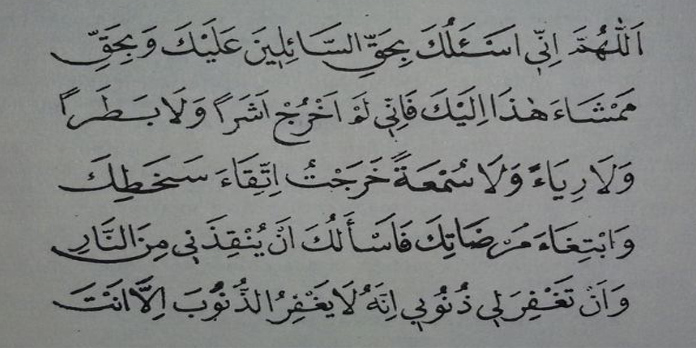 اَللّٰهُمَّ اِنِّي اَسْئَلُكَ بِحَقِّ السَّائِلِينَ عَلَيْكَ وَبِحَقِّ
مَمْشَاءَ هٰذَا اِلَيْكَ فَاِنِّي لَمْ اَخْرُجْ اَشَرًا وَلَا بَطَرًا
وَلَا رِيَاءً وَلَا سُمْعَةً خَرَجْتُ اِتِّقَاءَ سَخَطِكَ
وَابْتِغَاءَ مَرْضَاتِكَ فَاَسْأَلُكَ اَنْ يُنْقِذَنِي مِنَ النَّارِ
وَاَنْ تَغْفِرَ لِي ذُنُوبِي اِنَّهُ لَا يَغْفِرُ الذُّنُوبَ اِلَّا اَنْتَ